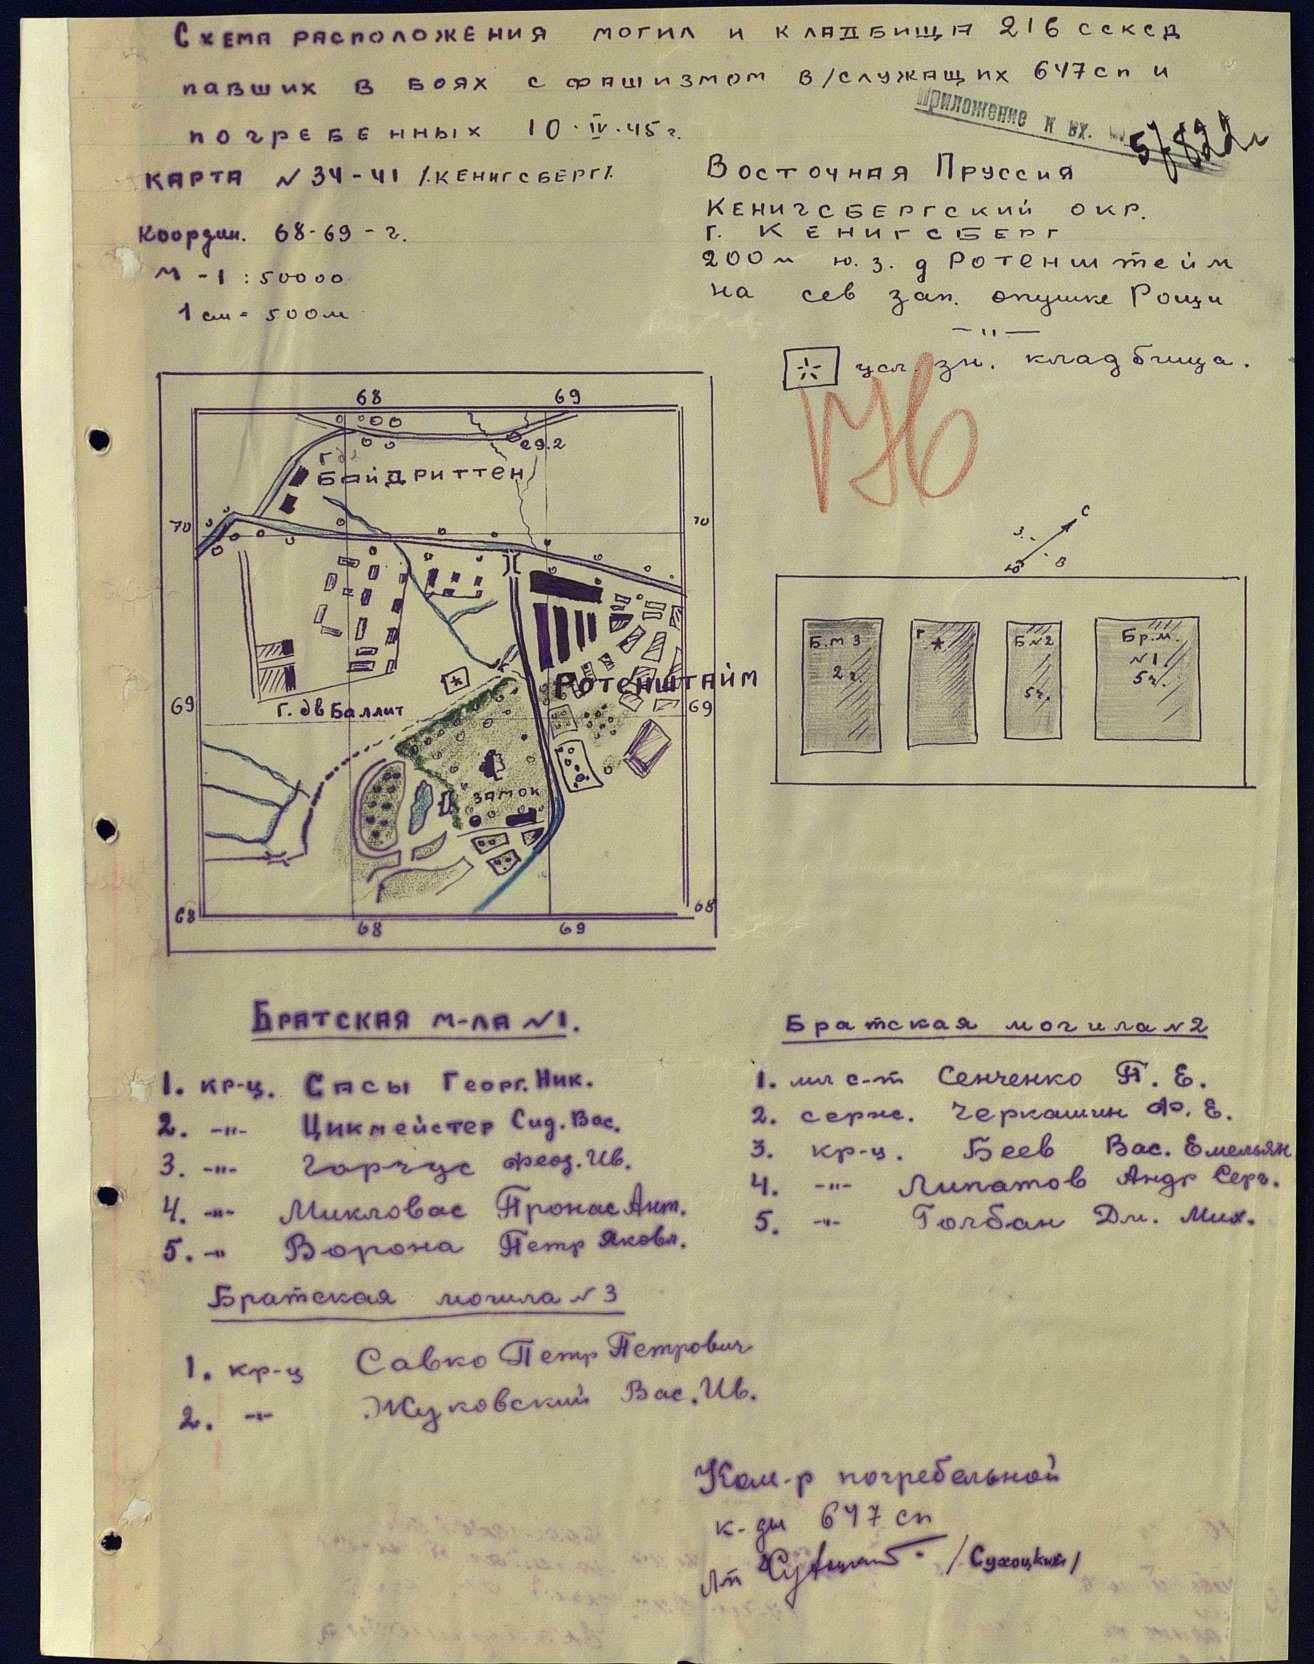 Схема расположения могил и кладбища 216 ссксд
павших в боях с фашизмом в/служащих 647 сп и
погребенных 10.IV.45 г.
Приложение к вх.
Карта N 34-41 /Кенигсберг/.
Координ. 68-69-г.
М-1:50000
1 см = 500 м
Восточная Пруссия
Кенигсбергский окр.
г. Кенигсберг
200 м ю.з. д Ротенштейм
на сев зап. опушке Рощи
-"-
усл. зн. кладбища.
68 69
Байдриттен
70 70
Ротенштайм
69 69
Г. дв Баллит
замок
68 68
68 69
С
З
В
Ю
Б.м 3
2 ч.
г
Б N2
5 ч.
Бр.м.
N1
5 ч.
Братская м-ла N1.
1. кр-ц. Сасы Георг. Ник.
2. -"- Цикмейстер Сид. Вас.
3. -"- Горчус Феод. Ив.
4. -"- Микловас Пронас Ант.
5. -"- Ворона Петр Яковл.
Братская могила N2
1. мл с-т Сенченко П. Е.
2. серж. Черкашин Ф. Е.
3. кр-ц. Беев Вас. Емельян
4. -"- Липатов Андр Серг.
5. -"- Голбан Дм. Мих.
Братская могила N3
1. кр-ц Савко Петр Петрович
2. -"- Жуковский Вас. Ив.
Ком-р погребельной
к-ды 647 сп
Лт /Сухоцкий/